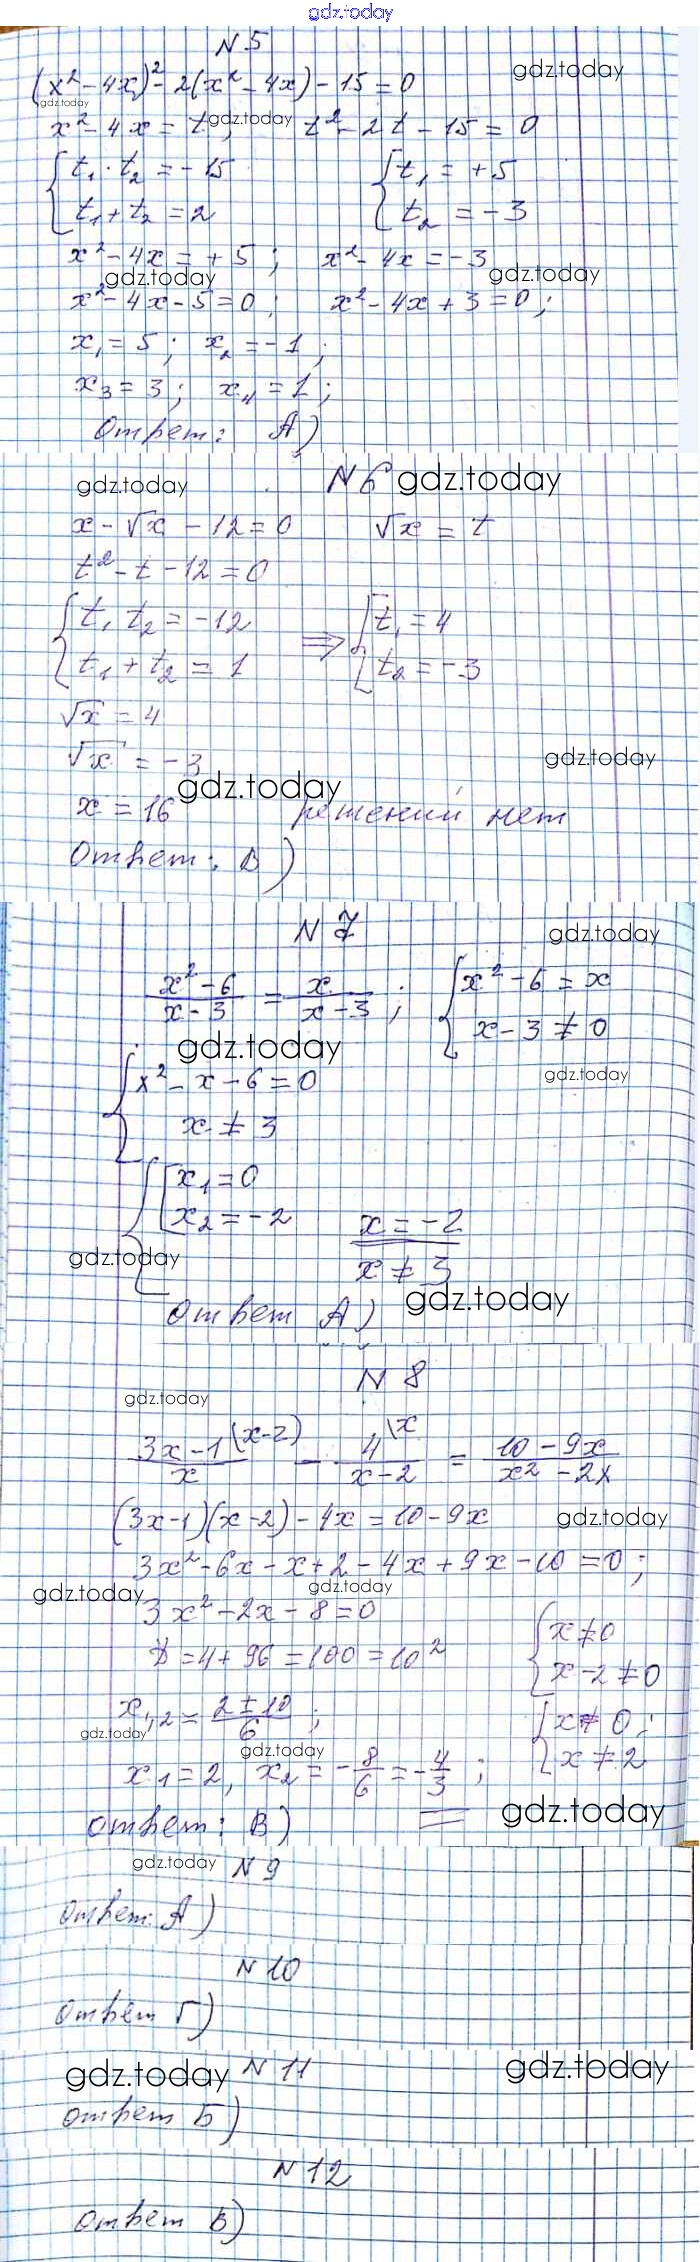 gdz.today
N 5
gdz.today
(x² - 4x)² - 2(x² - 4x) - 15 = 0
gdz.today
x² - 4x = t; gdz.today t² - 2t - 15 = 0
{ t₁ · t₂ = -15 { t₁ = +5
t₁ + t₂ = 2 t₂ = -3
x² - 4x = +5; x² - 4x = -3
gdz.today gdz.today
x² - 4x - 5 = 0; x² - 4x + 3 = 0;
x₁ = 5; x₂ = -1;
x₃ = 3; x₄ = 1;
Ответ: А)
gdz.today N 6 gdz.today
x - √x - 12 = 0 √x = t
t² - t - 12 = 0
{ t₁ t₂ = -12 => [ t₁ = 4
t₁ + t₂ = 1 t₂ = -3
√x = 4
√x = -3 gdz.today
gdz.today
x = 16 решений нет
Ответ: В)
N 7 gdz.today
(x² - 6)/(x - 3) = x/(x - 3); { x² - 6 = x
x - 3 ≠ 0
gdz.today
{ x² - x - 6 = 0 gdz.today
x ≠ 3
{ [ x₁ = 0
x₂ = -2 x = -2
gdz.today x ≠ 3
Ответ А) gdz.today
N 8
gdz.today
(3x - 1)/x \(x-2) - 4/(x - 2) \x = (10 - 9x)/(x² - 2x)
(3x-1)(x-2) - 4x = 10 - 9x gdz.today
3x² - 6x - x + 2 - 4x + 9x - 10 = 0;
gdz.today gdz.today
3x² - 2x - 8 = 0 { x ≠ 0
D = 4 + 96 = 100 = 10² x - 2 ≠ 0
x₁,₂ = (2 ± 10)/6; { x ≠ 0;
gdz.today gdz.today x ≠ 2
x₁ = 2, x₂ = -8/6 = -4/3;
Ответ: В) gdz.today
gdz.today N 9
Ответ: А)
N 10
Ответ Г)
gdz.today N 11 gdz.today
Ответ Б)
N 12
Ответ В)